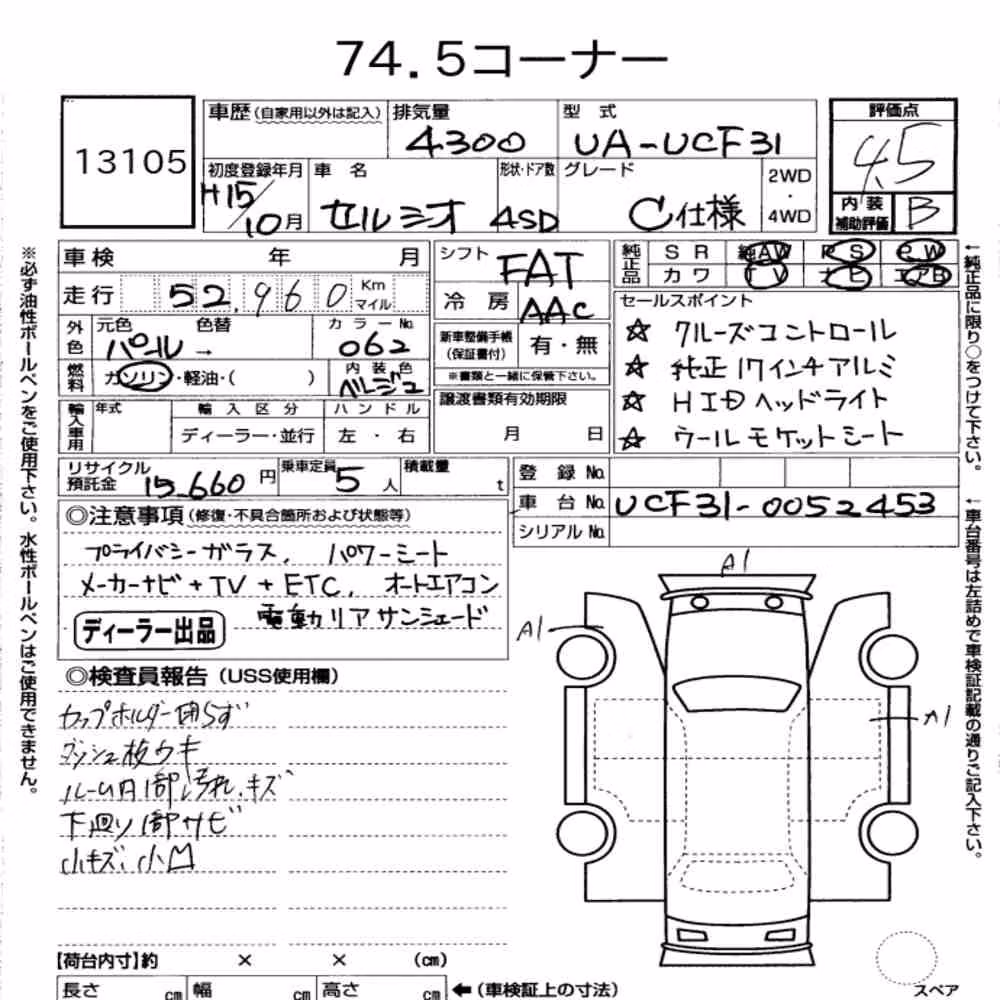 74.5コーナー
13105
車歴(自家用以外は記入) 排気量 型式 評価点
4300 UA-UCF31 4.5
初度登録年月 車名 形状・ドア数 グレード 2WD・4WD
H15/10月 セルシオ 4SD C仕様
内装補助評価 B
車検 年 月
走行 52,960 Km マイル
外色 元色 色替 カラーNo.
パール → 062
燃料 ガソリン・軽油・( ) 内装色 ベージュ
輸入車用 年式 輸入区分 ハンドル
ディーラー・並行 左・右
シフト FAT
冷房 AAC
新車整備手帳(保証書付) 有・無
※書類と一緒に保管下さい。
譲渡書類有効期限
月 日
純正品 SR 純AW PS PW
カワ TV ナビ エアB
セールスポイント
☆ クルーズコントロール
☆ 純正17インチアルミ
☆ HIDヘッドライト
☆ ウールモケットシート
リサイクル預託金 15,660円 乗車定員 5人 積載量 t
登録No.
車台No. UCF31-0052453
シリアルNo.
◎注意事項(修復・不具合箇所および状態等)
プライバシーガラス、パワーシート
メーカーナビ+TV+ETC、オートエアコン
電動リアサンシェード
ディーラー出品
◎検査員報告(USS使用欄)
カップホルダー閉らず
ダッシュ板ウキ
ルーム内1部汚れ、キズ
下廻り1部サビ
小キズ、小凹
A1
A1
A1
【荷台内寸】約 × × (cm)
長さ cm 幅 cm 高さ cm ←(車検証上の寸法)
スペア
※必ず油性ボールペンをご使用下さい。水性ボールペンはご使用できません。
←純正品に限り○をつけて下さい。
←車台番号は左詰めで車検証記載の通りご記入下さい。